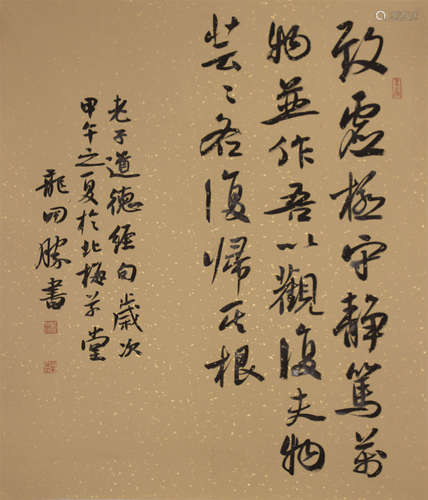 致虚極守静篤萬
物並作吾以觀復夫物
芸〻各復歸其根
老子道德經句歲次
甲午之夏於北極草堂
龍四勝書